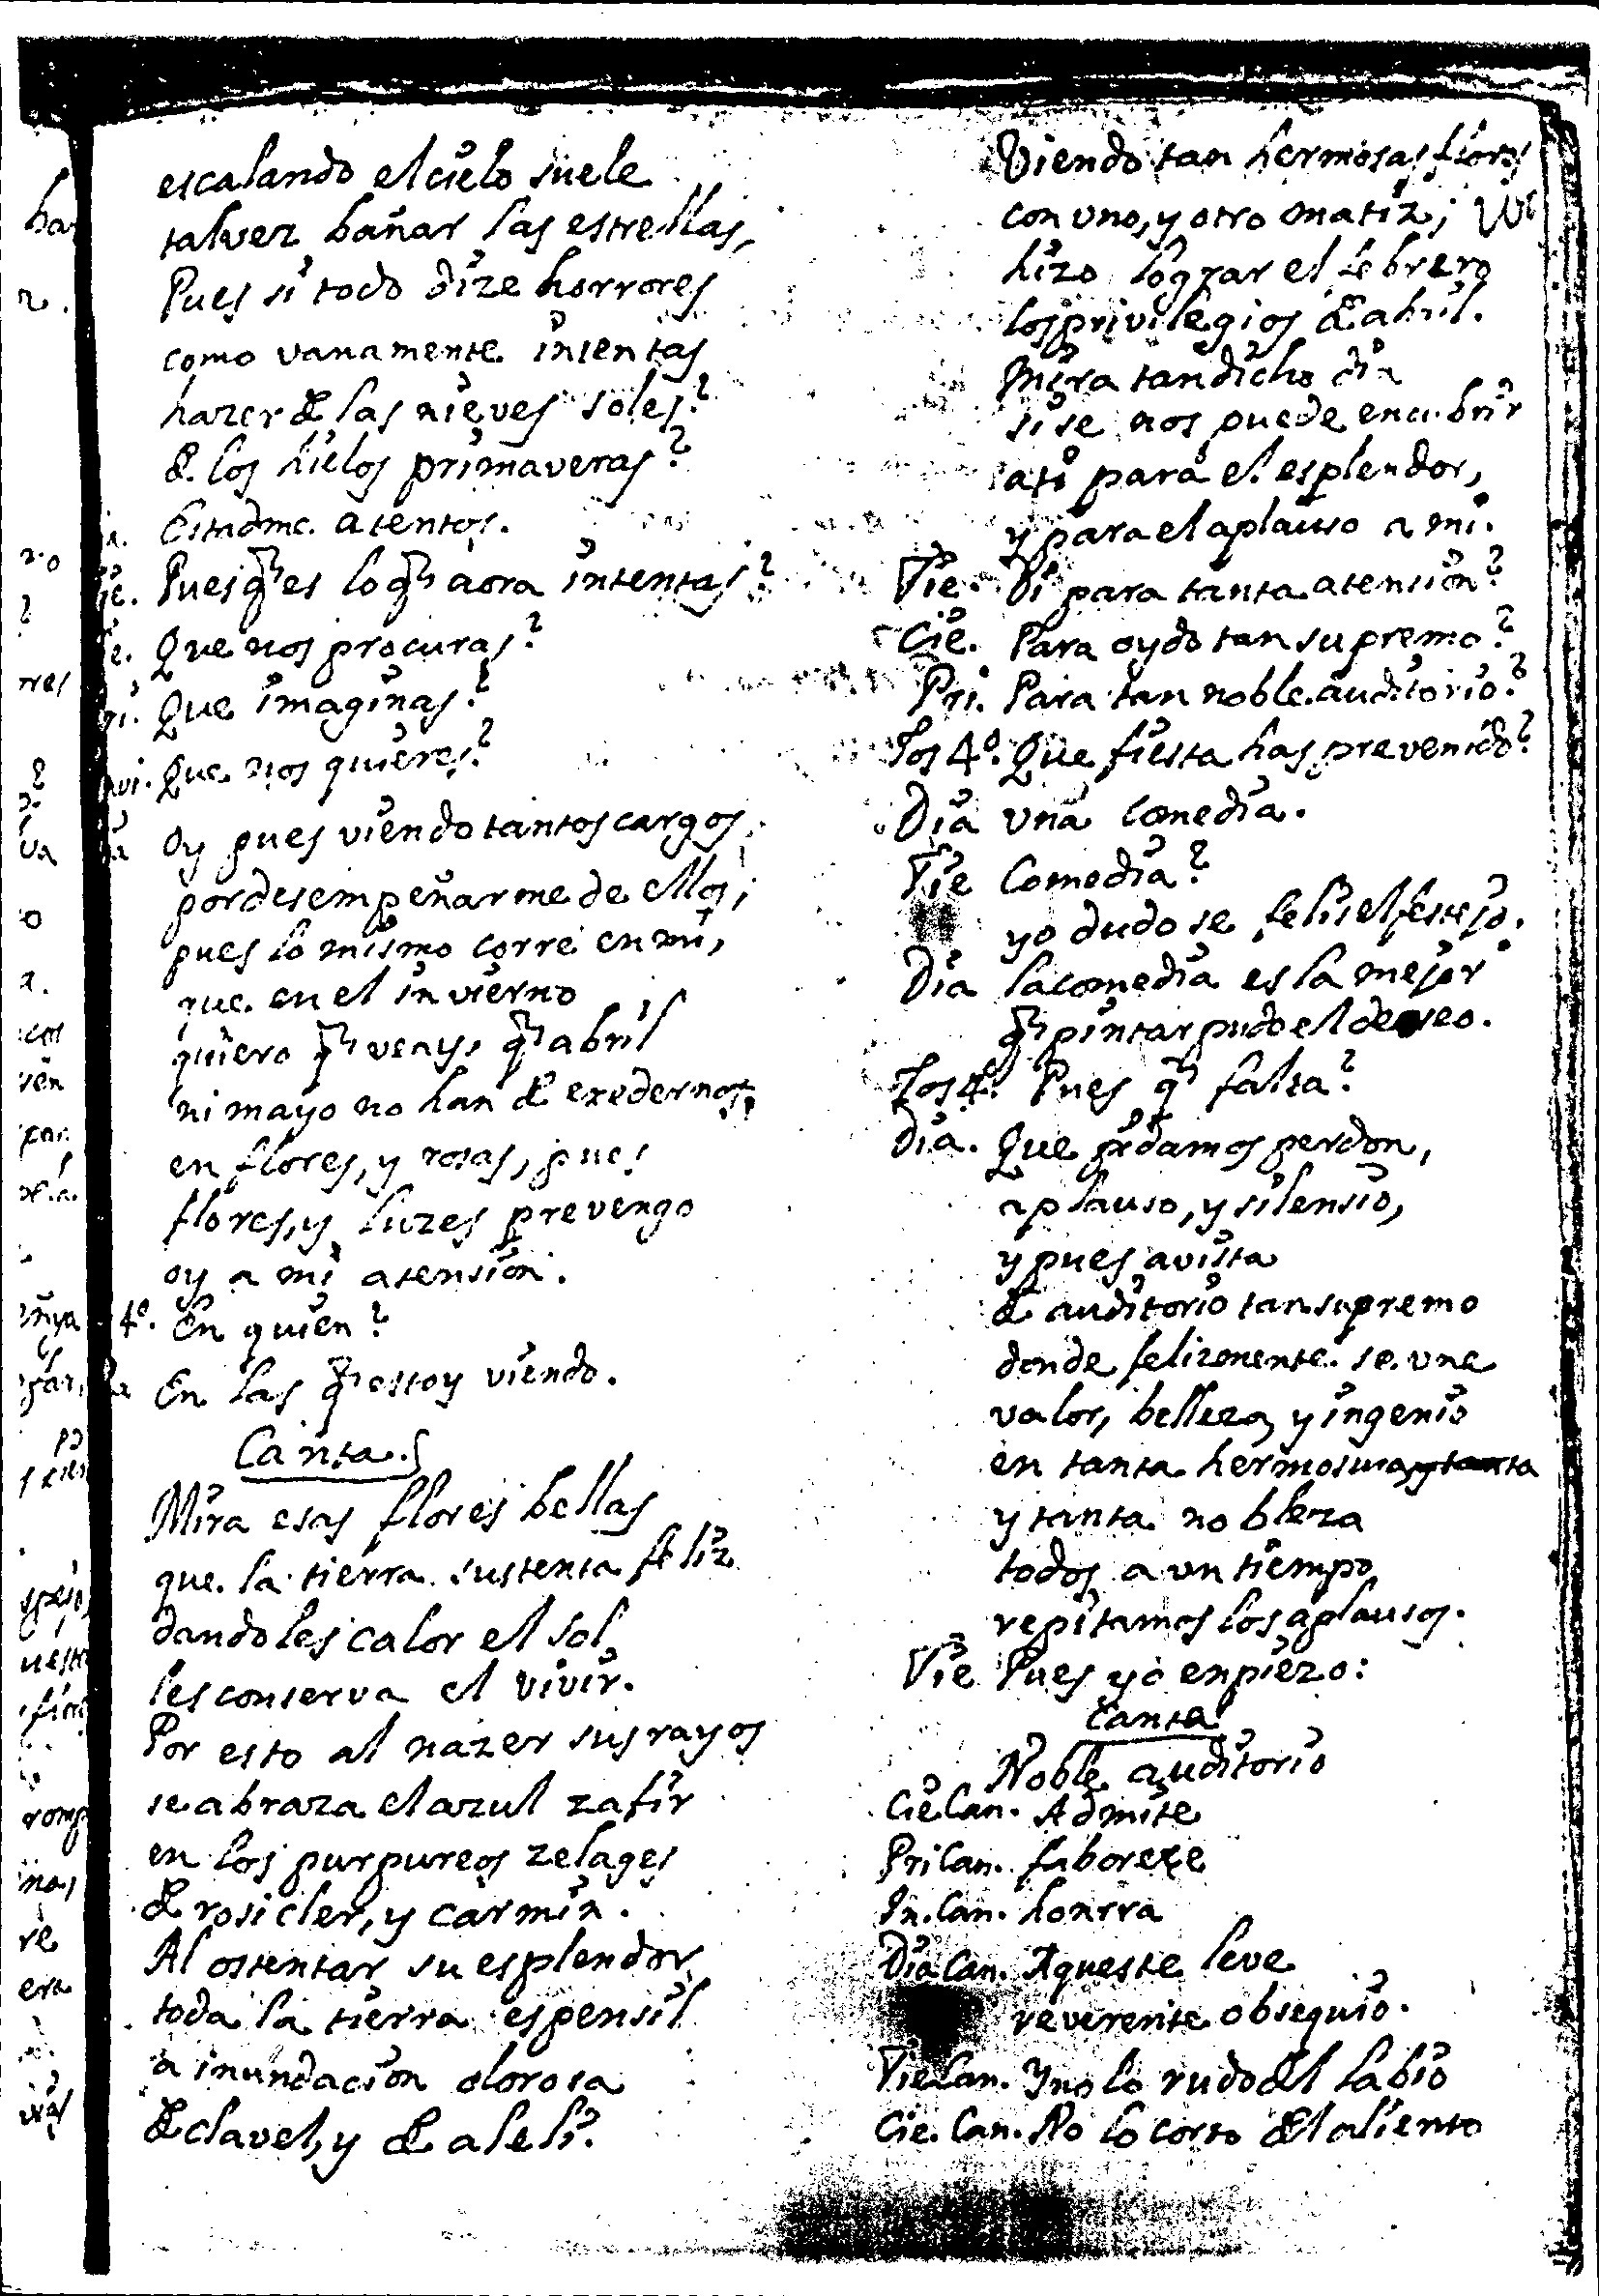 escalando el cielo suele
talvez bañar las estrellas,
Pues si todo dize horrores
como vanamente intentas
hazer de las nieves soles?
de los hielos primaveras?
Estadme atentos.
Pues q̃ es lo q̃ aora intentas?
Que nos procuras?
Que imaginas?
Que nos quieres?
Oy pues viendo tantos cargos,
por desempeñarme de ellos,
pues lo mismo corre en mi,
que en el invierno
quiero q̃ veays q̃ abril
ni mayo no han de exedernos
en flores, y rosas, pues
flores, y luzes prevengo
oy a mi atension.
4º. En quien?
En las q̃ estoy viendo.
Canta.
Mira esas flores bellas
que la tierra sustenta feliz
dandoles calor el sol
les conserva el vivir.
Por esto al nazer sus rayos
se abraza el azul zafir
en los purpureos zelages
de rosicler, y carmin.
Al ostentar su esplendor
toda la tierra es pensil
a inundacion olorosa
de clavel, y de aleli.
Viendo tan hermosas flores
con uno, y otro matiz;
hizo lograr el febrero
los privilegios de abril.
Mira tan dicho dia
si se nos puede encubrir
a ti para el esplendor,
y para el aplauso a mi.
Tie. Di para tanta atension?
Cie. Para oydo tan supremo?
Pri. Para tan noble auditorio?
Los 4º. Que fiesta has prevenido?
Dia una comedia.
Tie Comedia?
yo dudo se felis el festejo.
Dia la comedia es la mejor
q̃ pintar pudo el deseo.
Los 4º. Pues q̃ falta?
Dia. Que pidamos perdon,
aplauso, y silensio,
y pues a vista
de auditorio tan supremo
donde felizmente se une
valor, belleza, y ingenio
en tanta hermosura y tanta
y tanta nobleza
todos a un tiempo
repitamos los aplausos.
Tie Pues yo enpiezo:
Canta
Noble auditorio
Cie Can. Admite
Pri Can. faboreze
In. Can. honrra
Dia Can. Aqueste leve
reverente obsequio.
Tie Can. Y no lo rudo del labio
Cie. Can. No lo corto del aliento